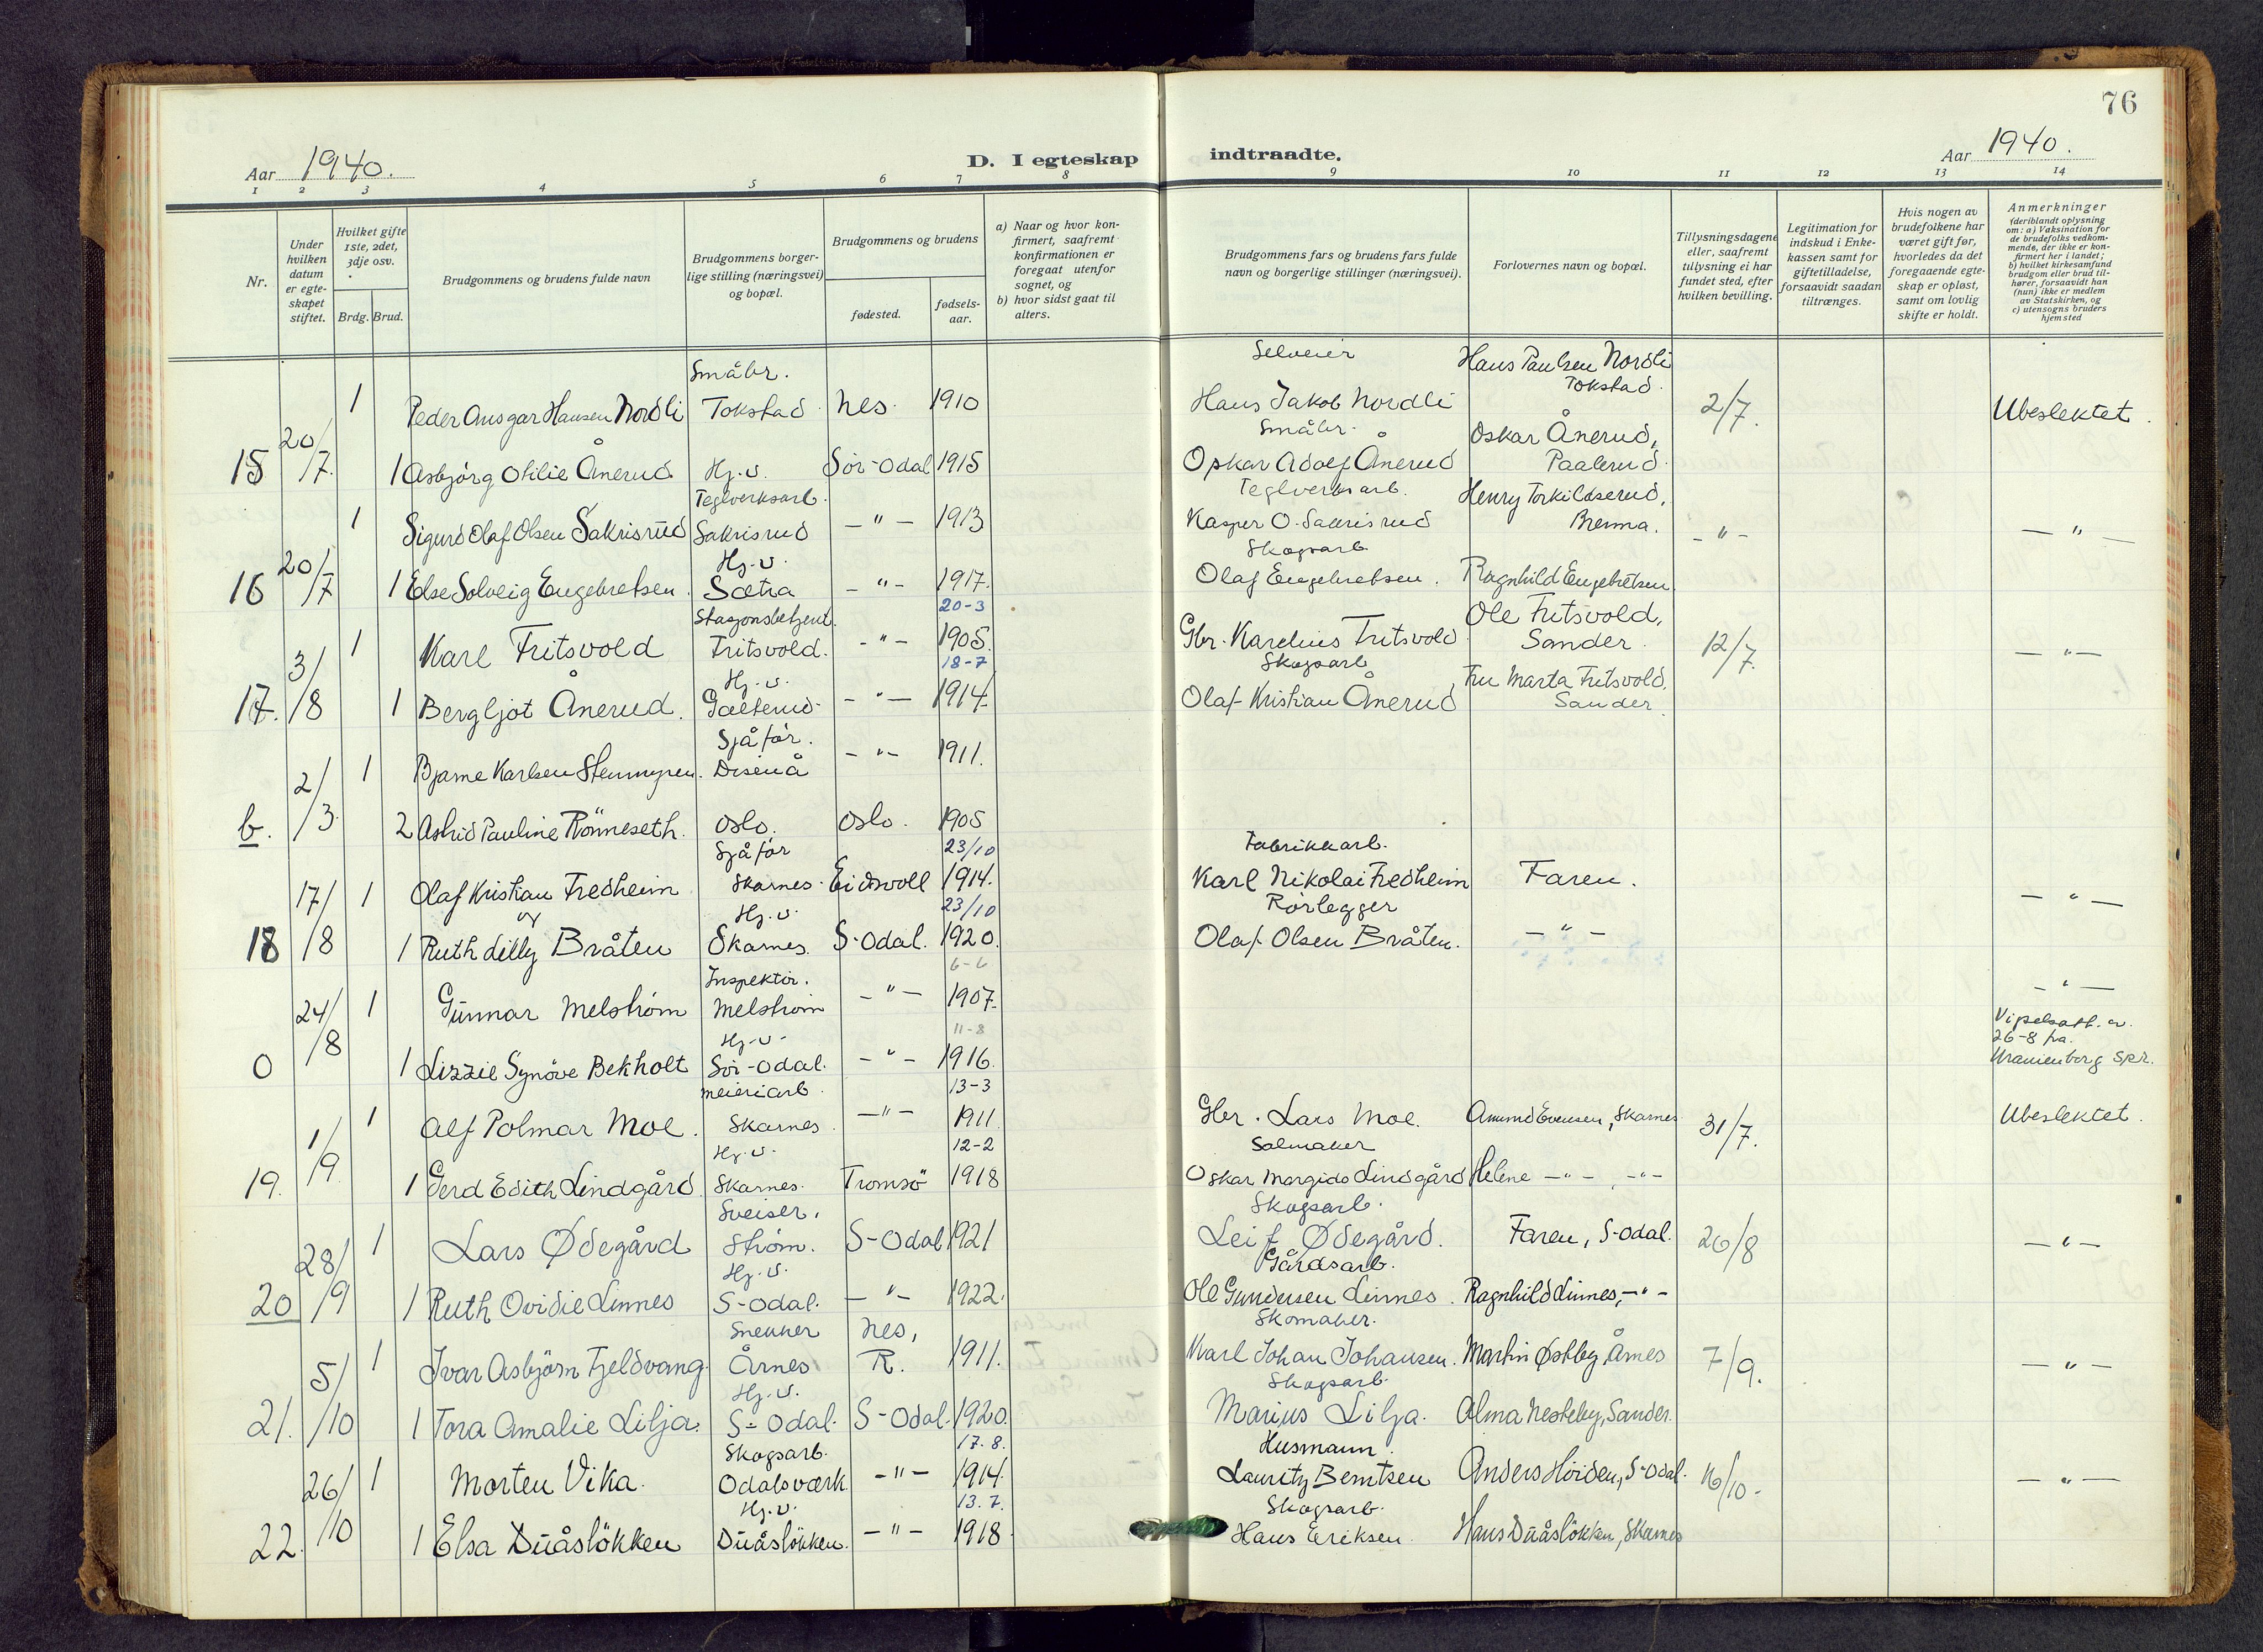 76
Aar 1940.
D. I egteskap indtraadte.
Aar 1940.
1 2 3 4 5 6 7 8 9 10 11 12 13 14
Nr.
Under hvilken datum er egteskapet stiftet.
Hvilket gifte 1ste, 2det, 3dje osv.
Brdg. Brud.
Brudgommens og brudens fulde navn
Brudgommens borgerlige stilling (næringsvei) og bopæl.
Brudgommens og brudens
fødested.
fødselsaar.
a) Naar og hvor konfirmert, saafremt konfirmationen er foregaat utenfor sognet, og
b) hvor sidst gaat til alters.
Brudgommens fars og brudens fars fulde navn og borgerlige stillinger (næringsvei).
Forlovernes navn og bopæl.
Tillysningsdagene eller, saafremt tillysning ei har fundet sted, efter hvilken bevilling.
Legitimation for indskud i Enkekassen samt for giftetilladelse, forsaavidt saadan tiltrænges.
Hvis nogen av brudefolkene har været gift før, hvorledes da det foregaaende egteskap er opløst, samt om lovlig skifte er holdt.
Anmerkninger
(deriblandt oplysning om: a) Vaksination for de brudefolks vedkommende, der ikke er konfirmert her i landet; b) hvilket kirkesamfund brudgom eller brud tilhører, forsaavidt han (hun) ikke er medlem av Statskirken, og c) utensogns bruders hjemsted
Småbr. Selveier Hans Paulsen Nordli
1 Peder Ansgar Hansen Nordli Tokstad Nes. 1910 Hans Jakob Nordli Tokstad. 2/7. Ubeslektet.
Småbr. Oskar Ånerud,
15 20/7. 1 Asbjørg Otilie Ånerud Hj.v. Sør-Odal 1915 Oskar Adolf Ånerud Paalerud.
Teglverksarb. Teglverksarb. Henry Torkildserud,
1 Sigurd Olaf Olsen Sakrisrud Sakrisrud - " - 1913 Kasper O. Sakrisrud Brenna. - " - - " -
Hj.v. Skogsarb.
16 20/7 1 Else Solveig Engebretsen. Sætra - " - 1917. Olaf Engebretsen. Ragnhild Engebretsen
Stasjonsbetjent. 20-3 Ole Fritsvold,
1 Karl Fritsvold Fritsvold. - " - 1905. Gbr. Karelius Fritsvold Sander. 12/7. - " -
Hj.v. 18-7 Skogsarb. Fru Marta Fritsvold,
17. 3/8 1 Bergljot Ånerud. Gætterud. - " - 1914. Olaf Kristian Ånerud Sander.
Sjåfør.
1 Bjarne Karlsen Stenmyren. Disenå - " - 1911.
b. 2/3. 2 Astrid Pauline Rønneseth. Oslo. Oslo. 1905
Sjåfør 23/10 Fabrikkarb.
1 Olaf Kristian Fredheim Skarnes. Eidsvoll 1914. Karl Nikolai Fredheim Faren. - " -
og Hj.v. 23/10 Rørlegger
18 17/8 1 Ruth Lilly Bråten Skarnes. S-Odal. 1920. Olaf Olsen Bråten. - " -
Inspektør. 6-6
1 Gunnar Melstrøm Melstrøm - " - 1907. - " -
Hj.v. 11-8
0 24/8 1 Lizzie Synøve Bekholt Sør-Odal. - " - 1916.
26-8 fra Uranienborg spr.
Meieriarb. 13-3
1 Alf Polmar Moe. Skarnes - " - 1911 Gbr. Lars Moe. Amund Evensen, Skarnes 31/7. Ubeslektet.
Hj.v. 12-2 Salmaker
19. 1/9 1 Gerd Edith Lindgård. Skarnes. Tromsø 1918 Oskar Margido Lindgård Helene - " - , - " -
Sveiser. Skogsarb.
1 Lars Ødegård Strøm. S-Odal 1921 Leif Ødegård. Faren, S-Odal. 26/8 - " -
Hj.v. Gårdsarb.
20 28/9 1 Ruth Ovidie Linnes S-Odal. - " - 1922. Ole Gundersen Linnes. Ragnhild Linnes, - " -
Snekker Nes, Skomaker.
1 Ivar Asbjørn Fjeldvang. Årnes R. 1911. Karl Johan Johansen. Martin Østby, Årnes 7/9. - " -
Hj.v. Skogsarb.
21. 5/10 1 Tora Amalie Lilja. S-Odal. S-Odal. 1920. Marius Lilja. Alma Nesteby, Sander.
Skogsarb. 17.8. Husmann.
1 Morten Vika. Odalsværk. - " - 1914. Lauritz Berntsen Anders Høiden, S-Odal. 16/10. - " -
Hj.v. 13.7. Skogsarb.
22. 26/10 1 Elsa Duåsløkken Duåsløkken. - " - 1918. Hans Eriksen. Hans Duåsløkken, Skarnes